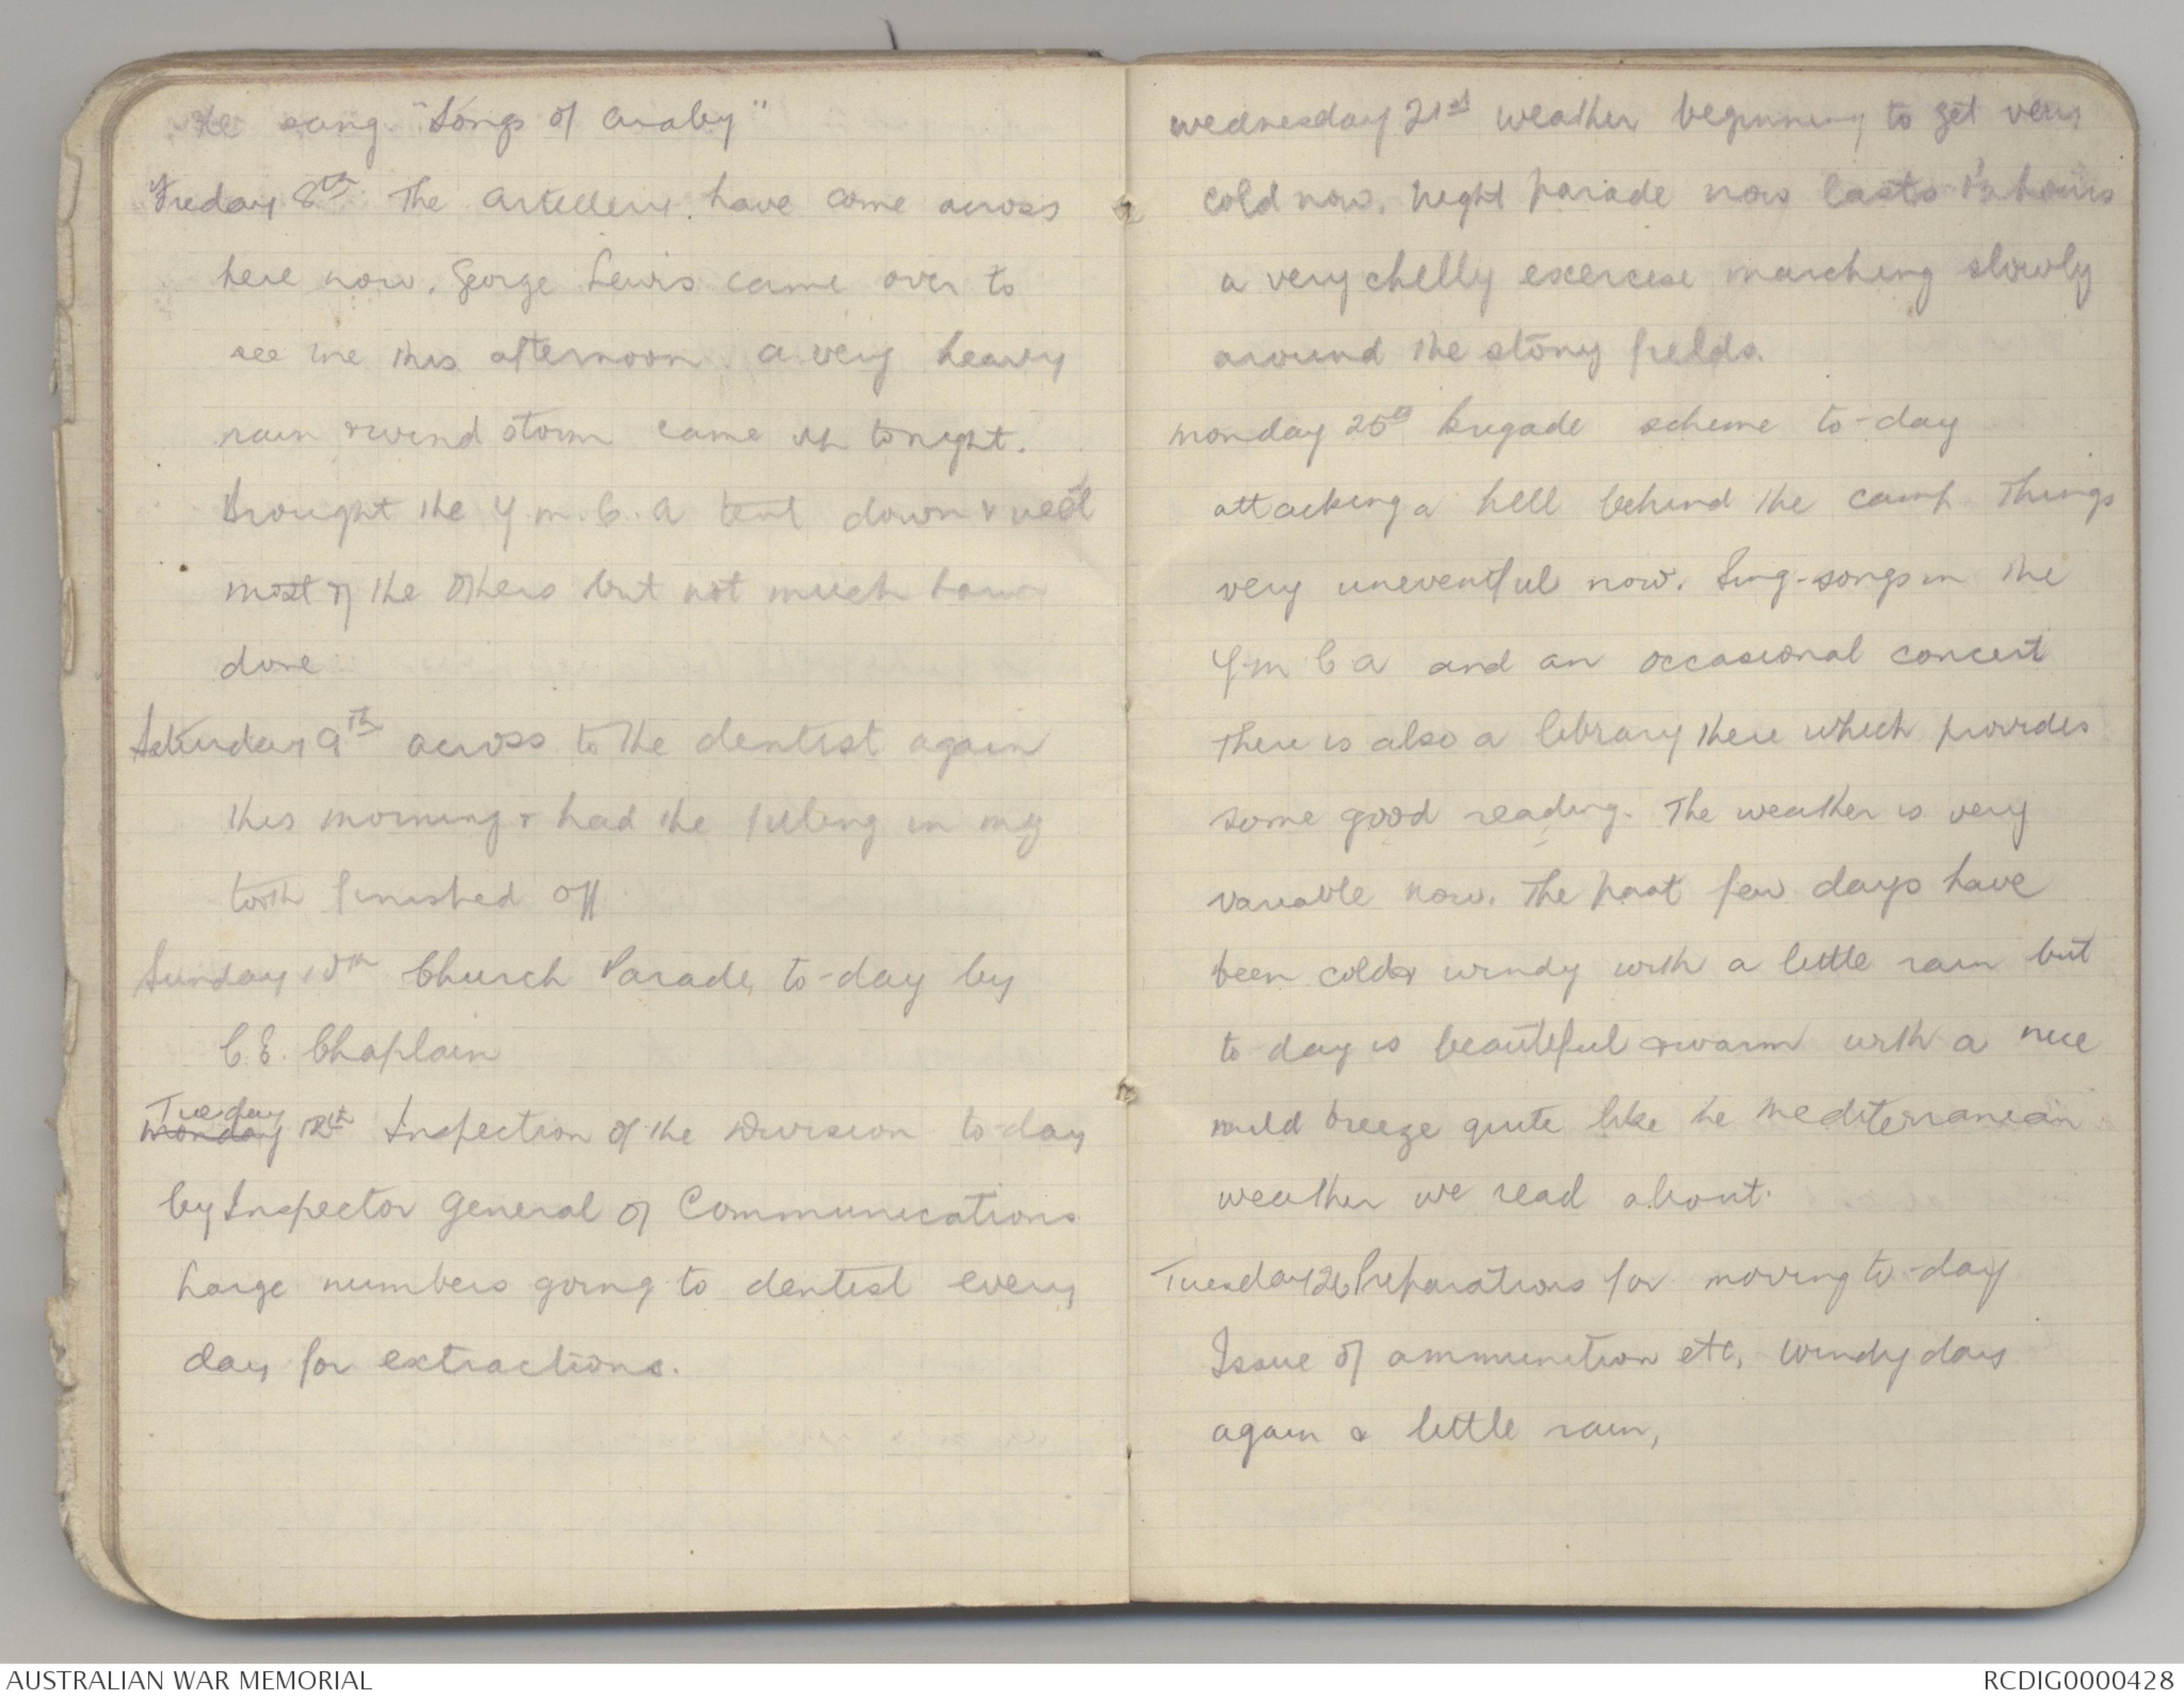 He sang "Songs of Araby"
Friday 8th The artillery have come across
here now. George Lewis came over to
see me this afternoon. a very heavy
rain & wind storm came up tonight.
Brought the Y.M.C.A tent down &
most of the others but not much harm
done
Saturday 9th across to the dentist again
this morning & had the filling in my
tooth finished off.
Sunday 10th Church Parade to-day by
C.E. Chaplain
Tuesday
Monday 12th Inspection of the Division to-day
by Inspector General of Communications
Large numbers going to dentist every
day for extractions.
Wednesday 21st weather beginning to get very
cold now. Night parade now lasts hours
a very chilly exercise marching slowly
around the stony fields.
Monday 25th Brigade scheme to-day
attacking a hill behind the camp Things
very uneventful now. Sing-songs in the
Y M C A and an occasional concert
There is also a library there which provides
some good reading. The weather is very
variable now. The past few days have
been cold & windy with a little rain but
to day is beautiful & warm with a nice
mild breeze quite like he Mediterranean
weather we read about.
Tuesday 26 Preparations for moving to-day
Issue of ammunition etc, windy days
again & little rain,
AUSTRALIAN WAR MEMORIAL
RCDIG0000428